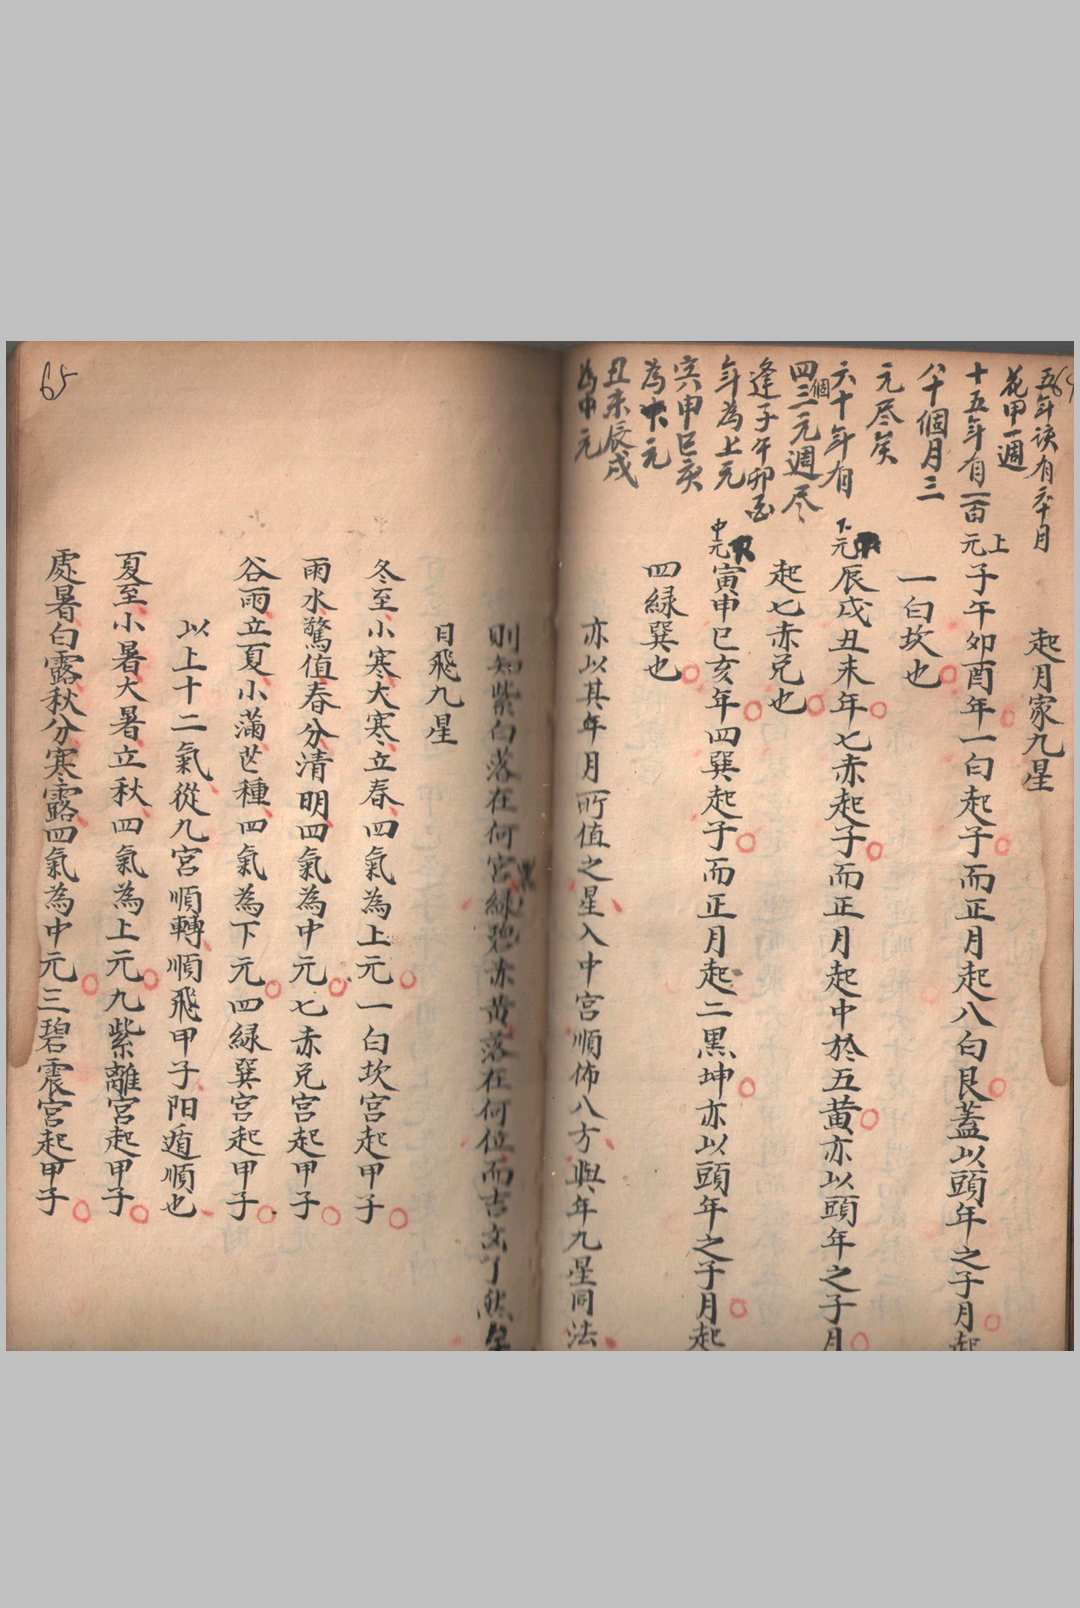 64
五年該有六十月
花甲一週
十五年有一百
八十個月三
元尽矣
六十年有
四個三元週尽
逢子午卯酉
年為上元
寅申巳亥
為元
丑未辰戌
為中元
起月家九星
上元
子午卯酉年一白起子而正月起八白艮蓋以頭年之子月起
一白坎也
下元
辰戌丑未年七赤起子而正月起中於五黃亦以頭年之子月
起七赤兌也
中元
寅申巳亥年四巽起子而正月起二黑坤亦以頭年之子月起
四緑巽也
亦以其年月所值之星入中宮順佈八方與年九星同法
則知紫白落在何宮緑碧赤黃落在何位而吉凶了然
日飛九星
冬至小寒大寒立春四氣為上元一白坎宮起甲子
雨水驚值春分清明四氣為中元七赤兌宮起甲子
谷雨立夏小滿芒種四氣為下元四緑巽宮起甲子
以上十二氣從九宮順轉順飛甲子阳遁順也
夏至小暑大暑立秋四氣為上元九紫離宮起甲子
處暑白露秋分寒露四氣為中元三碧震宮起甲子
65